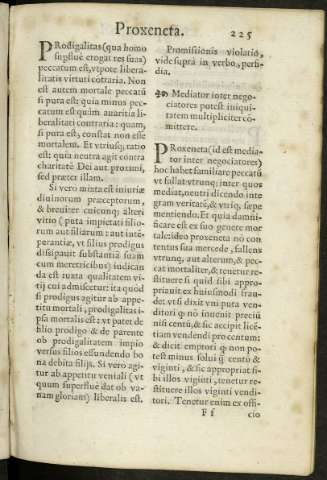 Proxeneta.
225
PRodigalitas (qua homo
superfluè erogat res suas)
peccatum est, vtpote libera-
litatis virtuti cōtraria. Non
est autem mortale peccatū
si pura est: quia minus pec-
catum est quàm auaritia li-
beralitati contraria: quam,
si pura est, constat non esse
mortalem. Et vtriusq; ratio
est quia neutra agit contra
charitatē Dei aut proximi,
sed præter illam.
Si vero mixta est iniuriæ
diuinorum præceptorum,
& breuiter cuicunq; alteri
vitio (puta impietati filio-
rum aut filiarum: aut intē-
perantiæ, vt filius prodigus
dissipauit substantiā suam
cum meretricibus) iudican
da est iuxta qualitatem vi-
tij cui admiscetur: ita quòd
si prodigus agitur ab appe-
titu mortali, prodigalitas i-
psa mortalis est: vt patet de
filio prodigo & de parente
ob prodigalitatem impio
versus filios effundendo bo
na debita filijs. Si vero agi-
tur ab appetitu veniali (vt
quum superflue dat ob va-
nam gloriam) liberalis est.
Promissionis violatio,
vide suprà in verbo, perfi-
dia.
Mediator inter nego-
ciatores potest iniqui-
tatem multipliciter cō-
mittere.
PRoxeneta (id est media-
tor inter negociatores)
hoc habet familiare peccatū
vt fallat vtrunq; inter quos
mediat, neutri dicendo inte
gram veritatē, & vtriq; sæpe
mentiendo. Et quia damni-
ficare est ex suo genere mor
tale: ideo proxeneta nō con
tentus sua mercede, fallens
vtrunq; aut alterum, & pec-
cat mortaliter, & tenetur re-
stituere si quid sibi appro
priauit ex huiusmodi frau-
de: vt si dixit vni puta ven-
ditori q̄ nō inuenit preciū
nisi centū, & sic accipit licē-
tiam vendendi pro centum:
& dicit emptori q̄ non po-
test minus solui q̄ centū &
viginti, & sic appropriat si-
bi illos viginti, tenetur re-
stituere illos viginti vendi-
tori. Tenetur enim ex offi-
Ff
cio